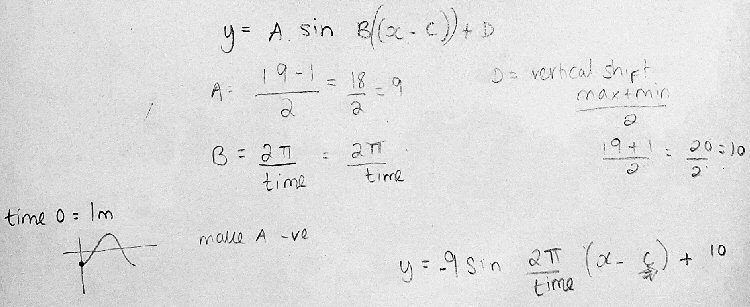 y = A sin B((x - c)) + D
A = 19 - 1 / 2 = 18 / 2 = 9
D = vertical shift
max + min / 2
19 + 1 / 2 = 20 / 2 = 10
B = 2π / time = 2π / time
time 0 = 1m
make A -ve
y = -9 sin 2π / time (x - c) + 10